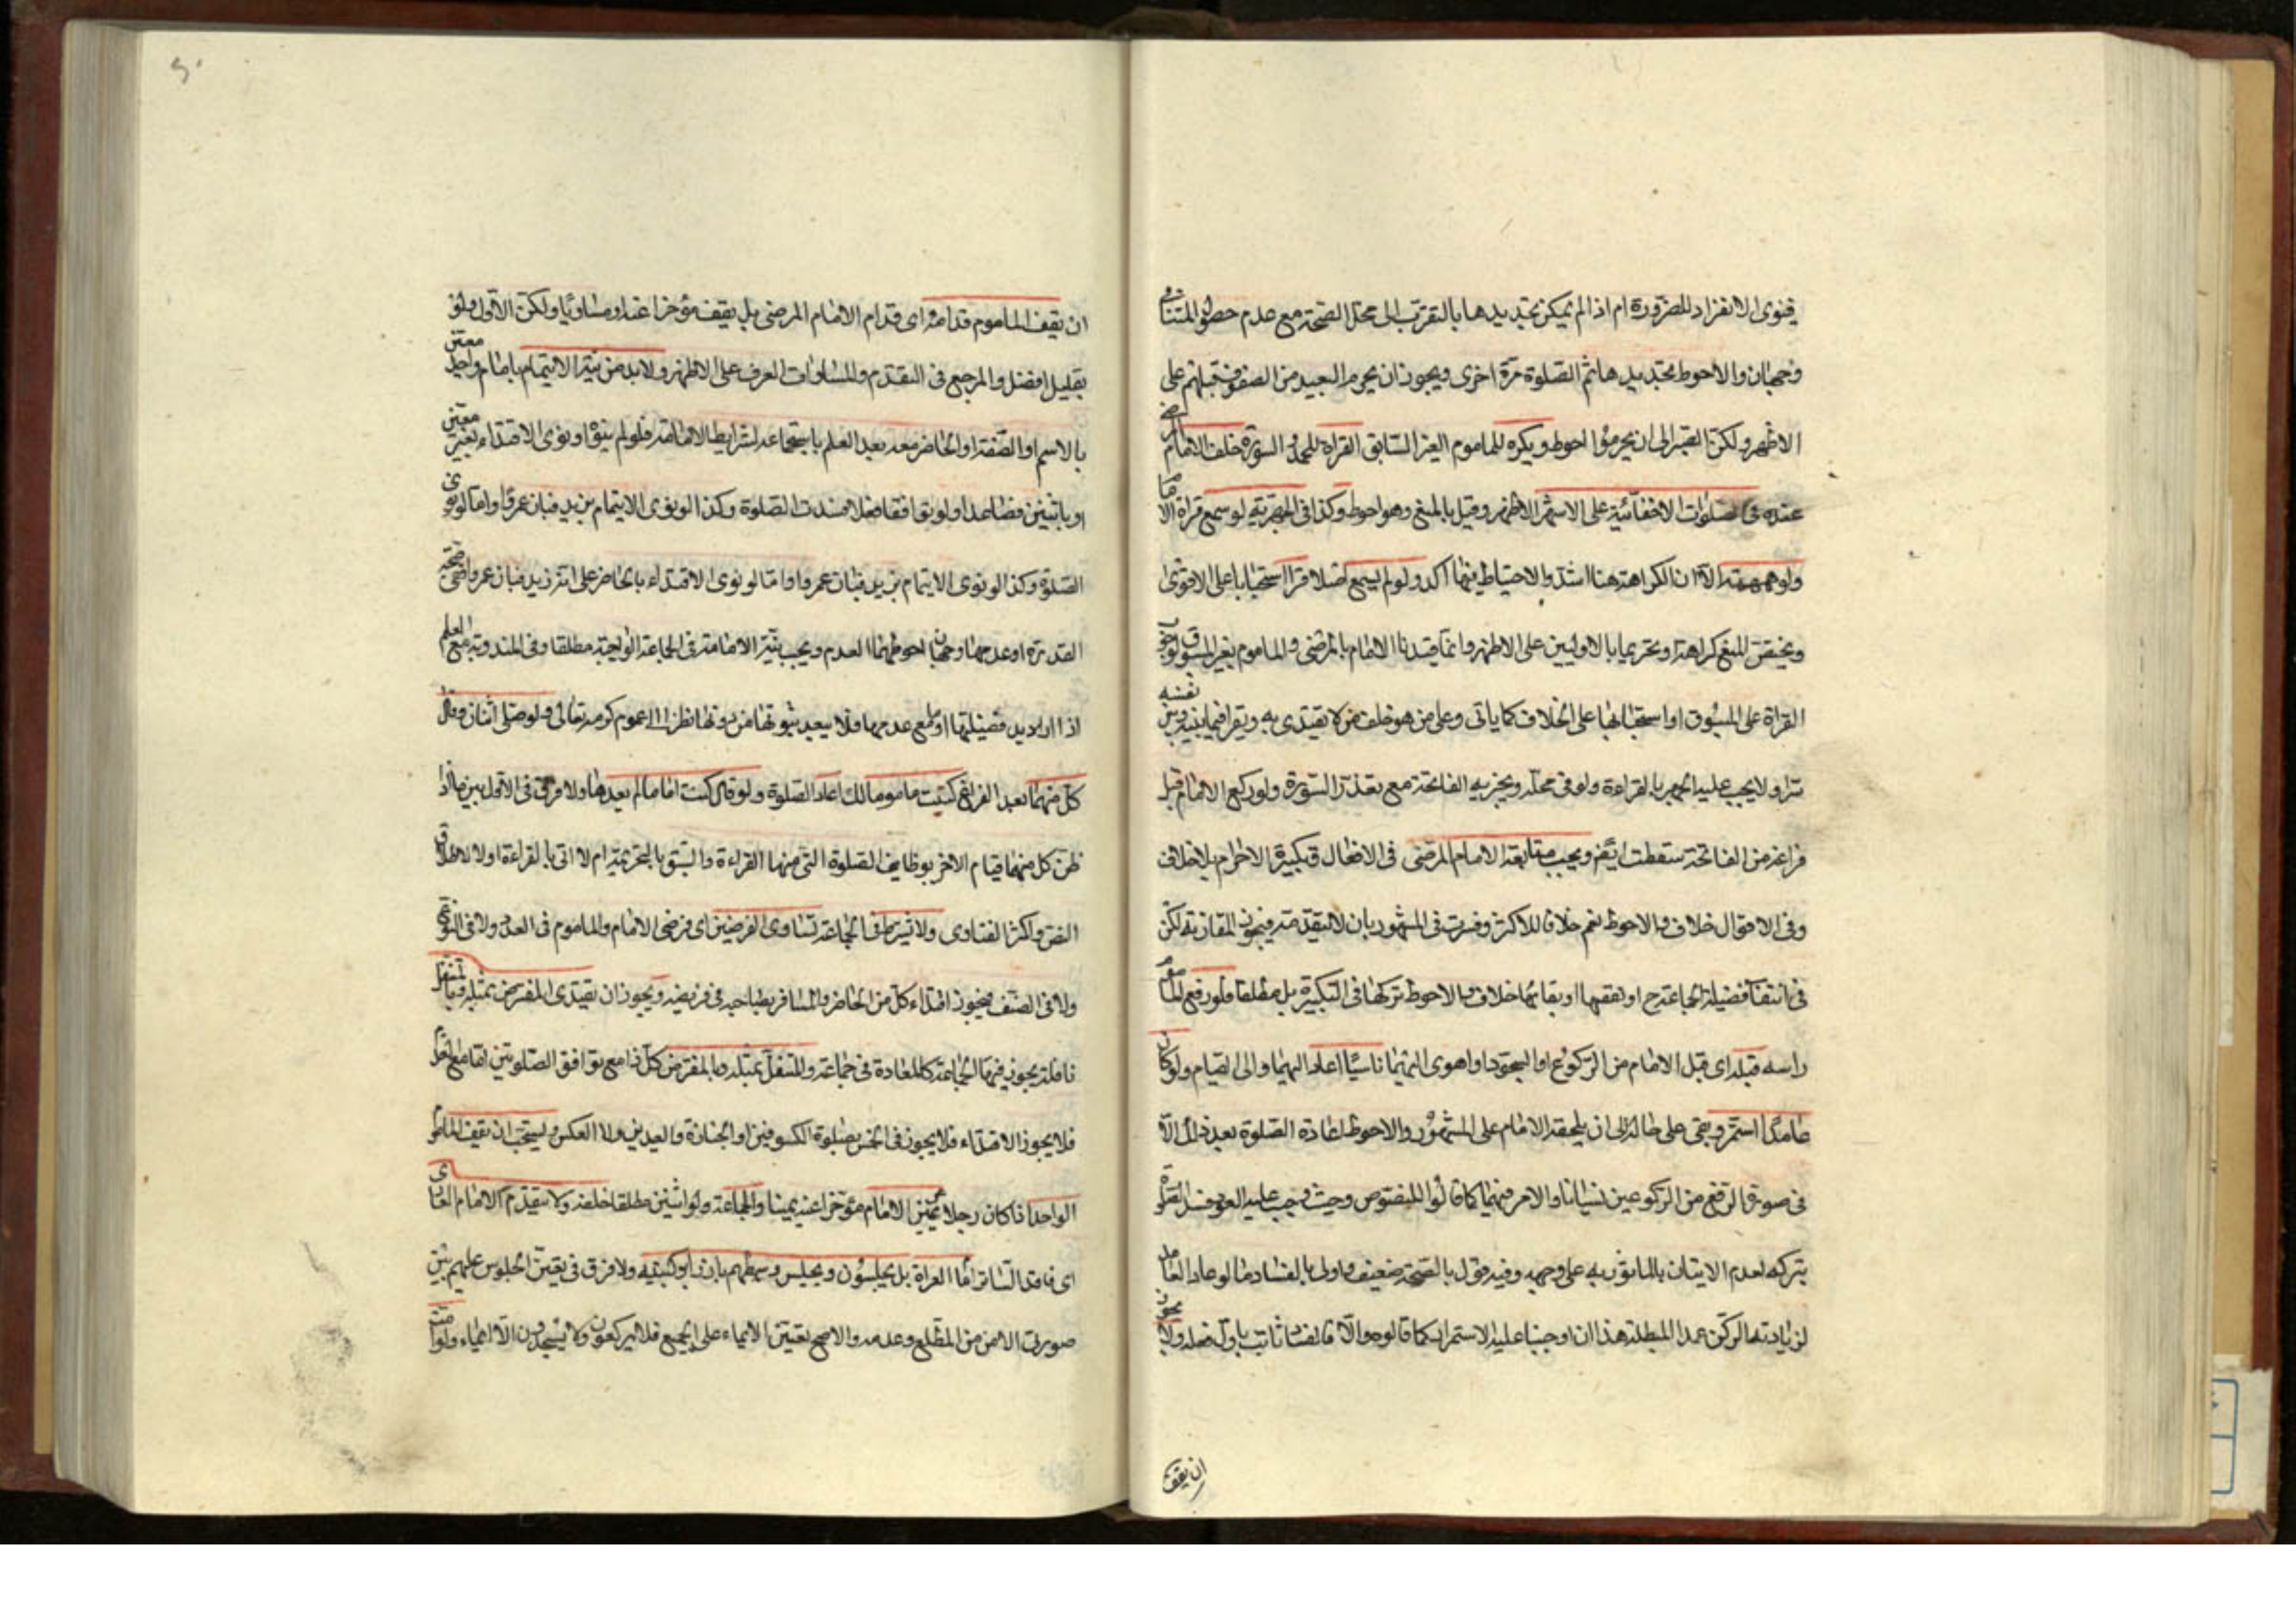 فينوى الانفراد للضرورة ام اذا لم يمكن تجديدها بالتقرب الى محل الصحة مع عدم حصول المنافى
وجهان والاحوط تجديدها ثم الصلوة مرة اخرى ويجوز ان يحرم البعيد من الصفوف قبلهم على
الاظهر ولكن الصبر الى ان يحرموا احوط ويكره للماموم الغير السابق القراة للحمد والسورة خلف الامام المرضى
عنده فى صلوات الاخفائية على الاشهر الاظهر وقيل بالمنع وهو احوط وكذا فى الجهرية لو سمع قراة الامام
ولو همهمته الا ان الكراهة هنا اشد والاحتياط فيها اكد ولو لم يسمع اصلا قرا استحبابا على الاقوى
ويختص المنع كراهة وتحريما بالاوليين على الاظهر وانما قيدنا الامام بالمرضى والماموم بغير المسبوق لوجوب
القراة على المسبوق او استحبابها على الخلاف كما ياتى وعلى من هو خلف من لا يقتدى به ويقرا فيما بينه وبين نفسه
سرا ولا يجب عليه الجهر بالقراءة ولو فى محله ويجزيه الفاتحة مع تعذر السورة ولو ركع الامام قبل
فراغه من الفاتحة سقطت ايضا ويجب متابعة الامام المرضى فى الافعال وتكبيرة الاحرام بلا خلاف
وفى الاقوال خلاف والاحوط نعم خلافا للاكثر وفسرت فى المشهور بان لا يتقدمه فيجوز المقارنة لكن
فى انتفاء فضيلة الجماعة ح او نقصها او بقائها خلاف والاحوط تركها فى التكبيرة بل مطلقا ولو رفع الماموم
راسه قبله اى قبل الامام من الركوع او السجود او اهوى اليهما ناسيا اعاد اليهما والى القيام ولو كان
عامدا استمر وبقى على حاله الى ان يلحقه الامام على المشهور والاحوط اعادة الصلوة بعد ذلك الا
فى صورة الرفع من الركوعين نسيانا والامر فيهما كما قالوا للنصوص وحيث وجب عليه العود فسد الصلوة
بتركه لعدم الاتيان بالمامور به على وجهه وفيه قول بالصحة ضعيف واولى بالفساد ما لو عاد العامد
لزيادته الركن عمدا المبطلة هذا ان اوجبنا عليه الاستمرار كما قالوه والا فالفساد ثابت باول فعله ولا يجوز
ان يقف
ان يقف الماموم قدامه اى قدام الامام المرضى بل يقف مؤخرا عنه او مساويا ولكن الاول ولو
بقليل افضل والمرجع فى التقدم والمساوات العرف على الاظهر ولا بد من نية الايتمام بامام واحد معين
بالاسم او الصفة او الحاضر معه بعد العلم باستجماعه لشرايط الامامة فلو لم ينو او نوى الاقتداء بغير معين
او باثنين فصاعدا ولو توافقا فعلا فسدت الصلوة وكذا لو نوى الايتمام بزيد فبان عمروا واما لو نوى
الصلوة وكذا لو نوى الايتمام بزيد فبان عمروا واما لو نوى الاقتداء بالحاضر على انه زيد فبان عمروا صحة
القدرة او عدمها وجهان احوطهما العدم ويجب نية الامامة فى الجماعة الواجبة مطلقا وفى المندوبة مع العلم
اذا اريد فضيلتها او لمع عدمها فلا يبعد ثبوتها من دونها نظرا الى عموم كرمه تعالى ولو صلى اثنان وقال
كل منهما بعد الفراغ كنت ماموما لك اعاد الصلوة ولو قال كنت اماما لم يعدها ولا فرق فى الاول بين ما اذا
ظن كل منهما قيام الاخر بوظايف الصلوة التى منها القراءة والسبق بالتحريمة ام لا اتى بالقراءة او لا لاطلاق
النص واكثر الفتاوى ولا يشترط فى الجماعة تساوى الفرضين اى فرضى الامام والماموم فى العدد ولا فى النوع
ولا فى الصنف فيجوز اقتداء كل من الحاضر والمسافر بصاحبه فى فريضه ويجوز ان يقتدى المفترض بمثله وبالمتنفل
نافلة يجوز فيها الجماعة كالمعادة فى جماعة والمتنفل بمثله وبالمفترض كل ذا مع توافق الصلوتين نظاما مع
فلا يجوز الاقتداء فلا يجوز فى الخمس بصلوة الكسوفين او الجنازة والعيدين ولا العكس ويستحب ان يقف الماموم
الواحد اذا كان رجلا عن يمين الامام مؤخرا عنه يمينا والجماعة ولو اثنين مطلقا خلفه ولا يتقدم الامام العارى
اى فاقد الساتر امام العراة بل يجلسون ويجلس وسطهم بارزا بركبتيه ولا فرق فى تعين الجلوس عليهم بين
صورتى الامن من المطلع وعدمه والاصح تعيين الايماء على الجميع فلا يركعون ولا يسجدون الا ايماء ولو امت